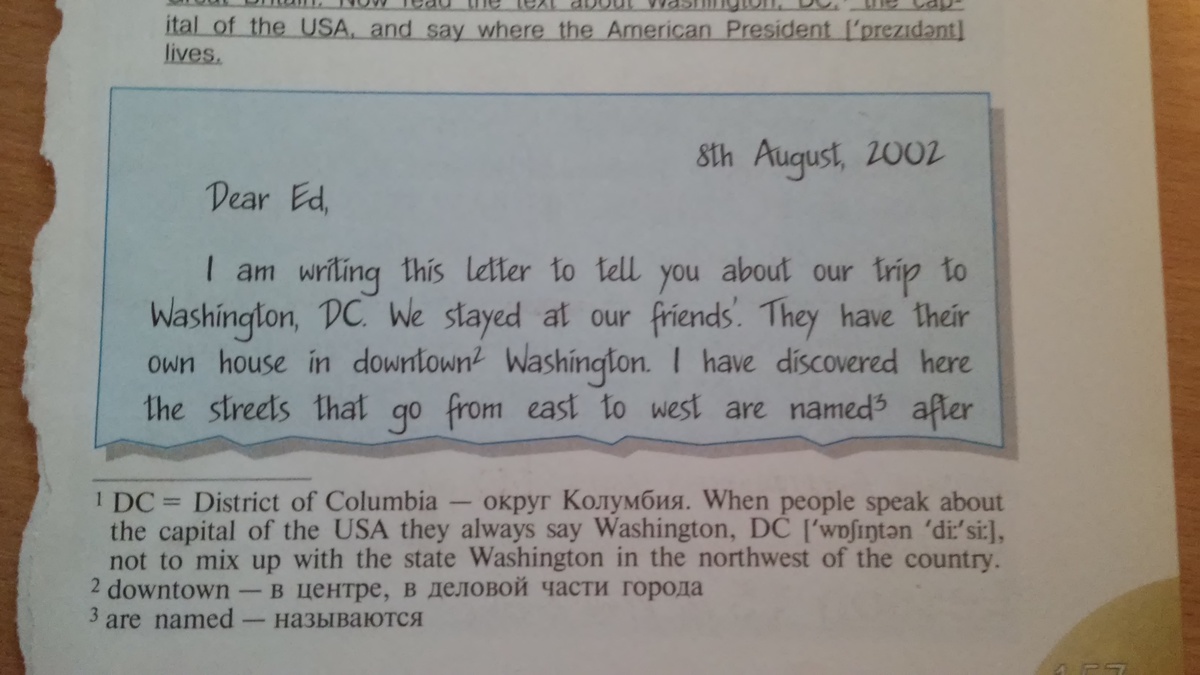 Great Britain. Now read the text about Washington, DC,¹ the cap-
ital of the USA, and say where the American President [ˈprezɪdənt]
lives.
8th August, 2002
Dear Ed,
I am writing this letter to tell you about our trip to
Washington, DC. We stayed at our friends'. They have their
own house in downtown² Washington. I have discovered here
the streets that go from east to west are named³ after
¹ DC = District of Columbia — округ Колумбия. When people speak about
the capital of the USA they always say Washington, DC [ˈwɒʃɪŋtən ˈdiːˈsiː],
not to mix up with the state Washington in the northwest of the country.
² downtown — в центре, в деловой части города
³ are named — называются
157